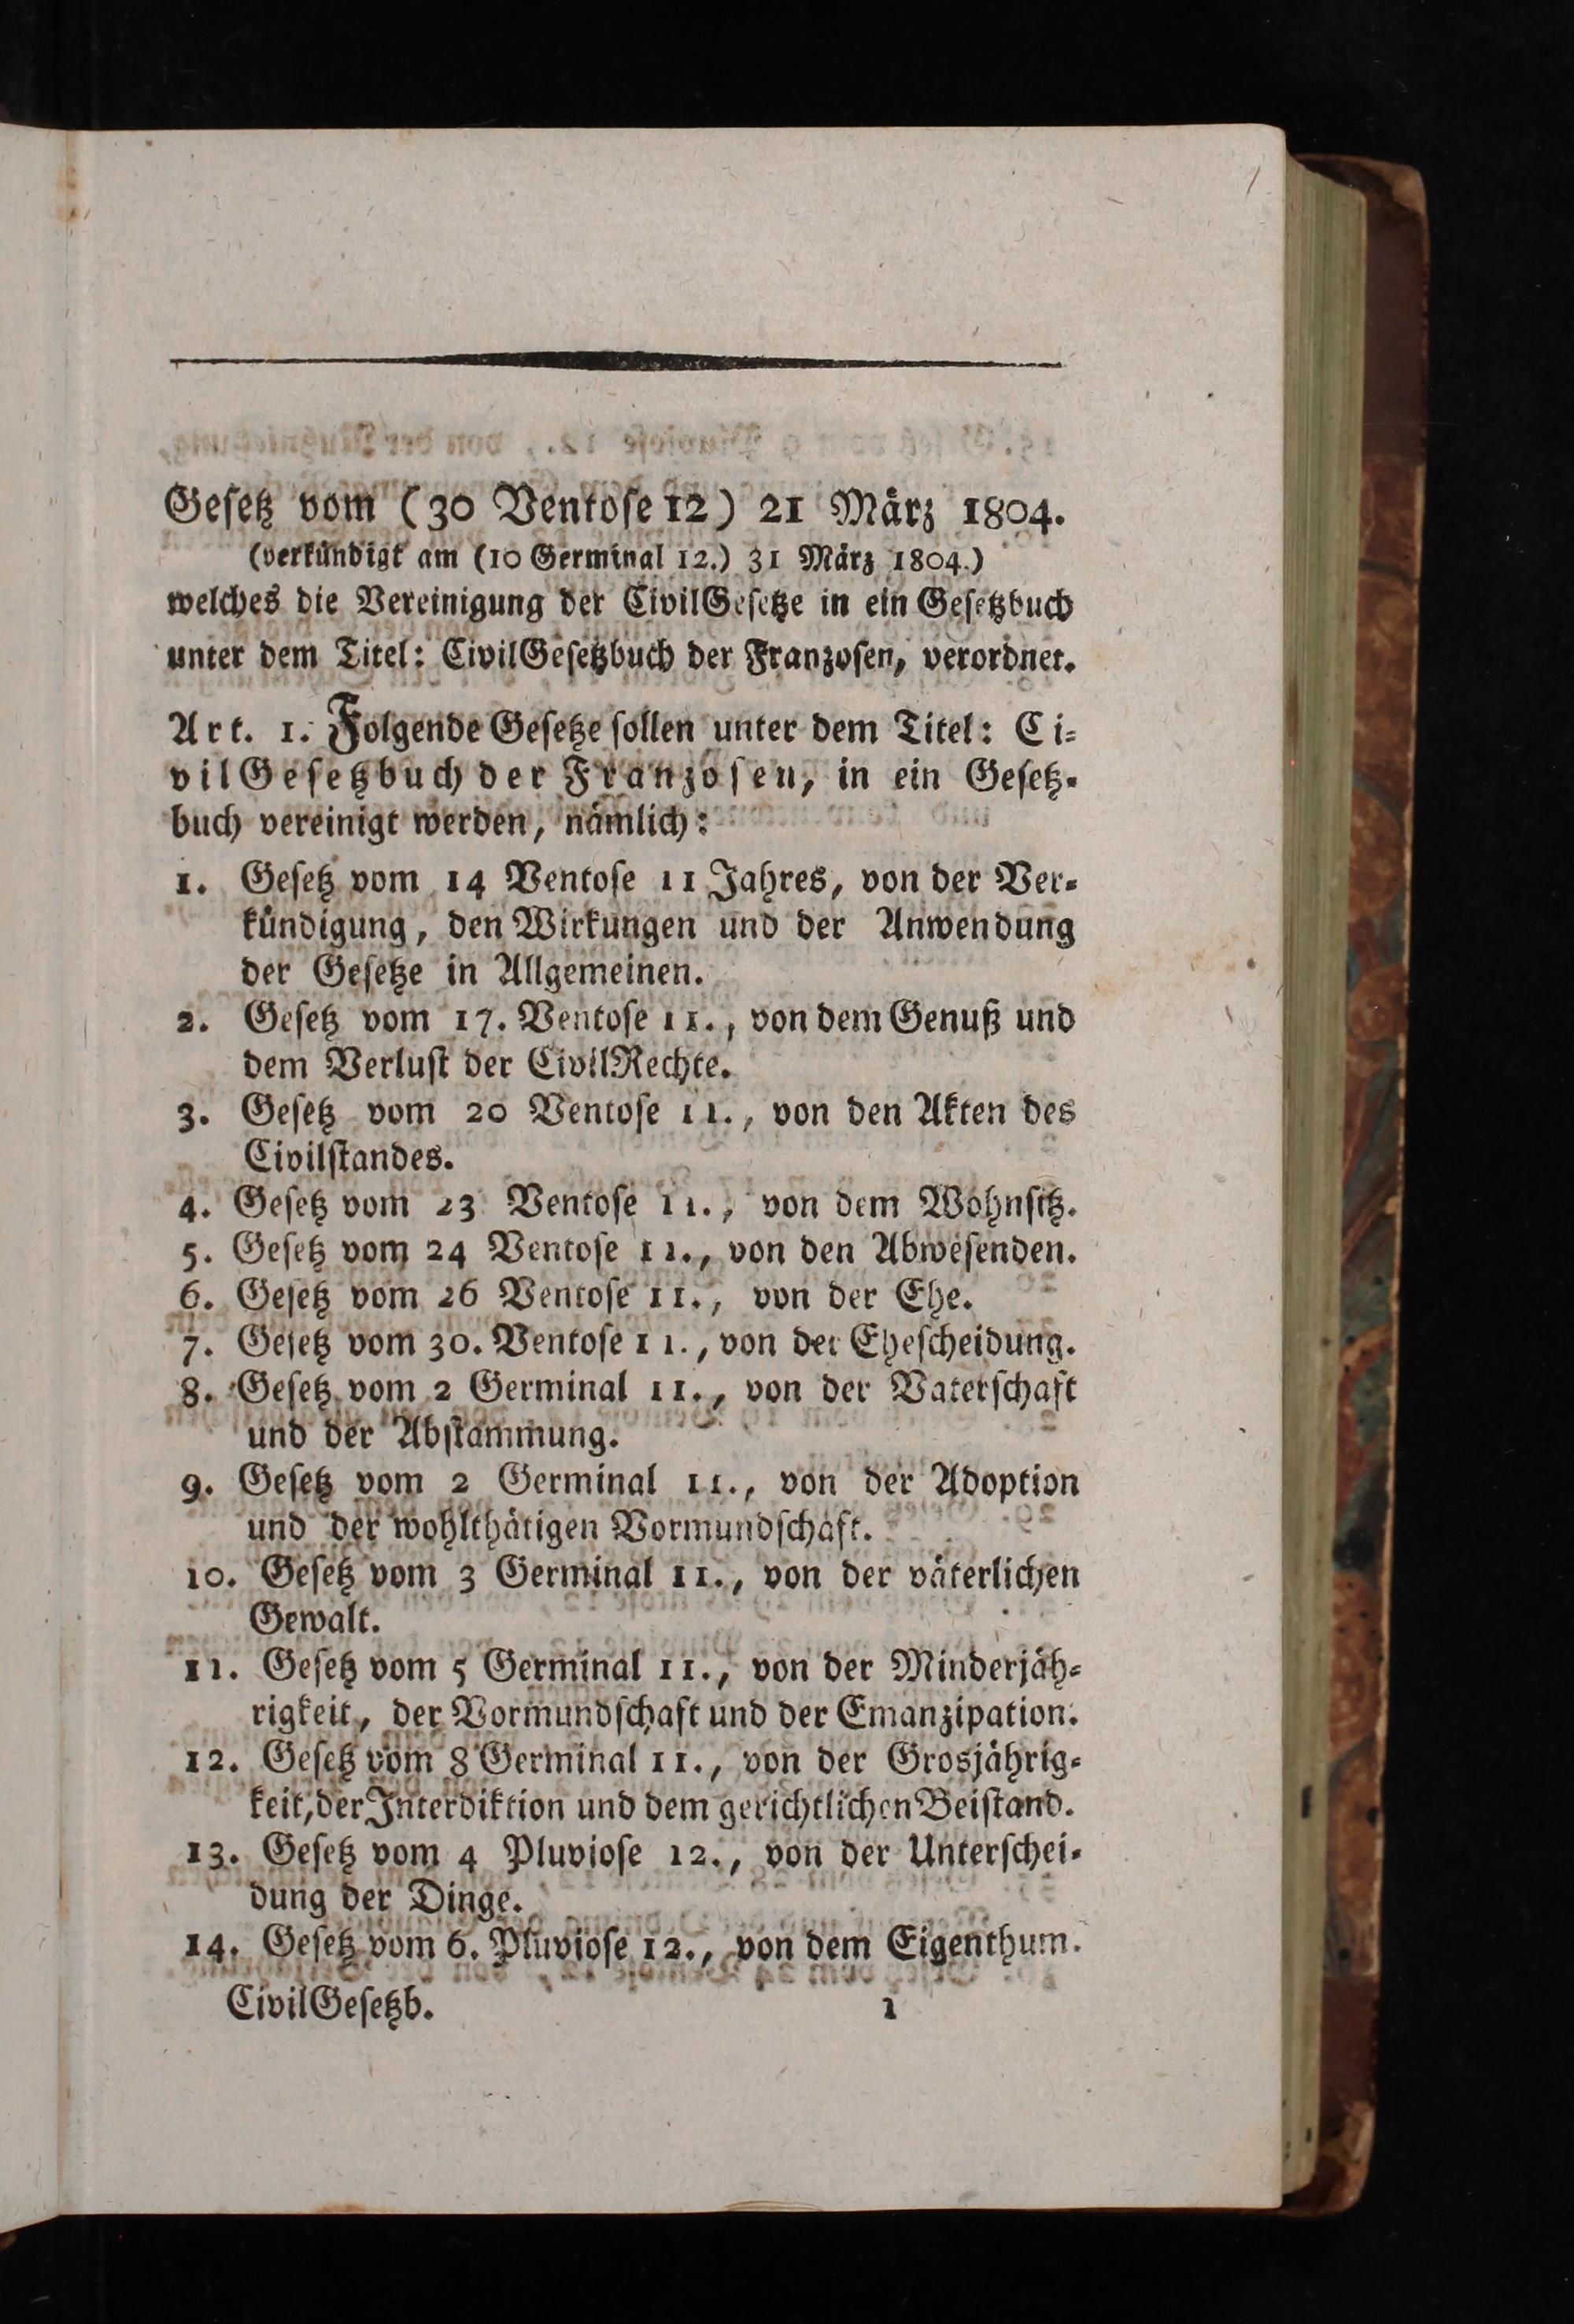 Geſetz vom (30 Ventoſe 12) 21 März 1804.
(verkündigt am (10 Germinal 12.) 31 März 1804.)
welches die Vereinigung der CivilGeſetze in ein Geſetzbuch
unter dem Titel: CivilGeſetzbuch der Franzoſen, verordnet.
Art. 1. Folgende Geſetze ſollen unter dem Titel: Ci⸗
vilGeſetzbuch der Franzoſen, in ein Geſetz⸗
buch vereinigt werden, nämlich:
1. Geſetz vom 14 Ventoſe 11 Jahres, von der Ver⸗
kündigung, den Wirkungen und der Anwendung
der Geſetze in Allgemeinen.
2. Geſetz vom 17. Ventoſe 11., von dem Genuß und
dem Verluſt der CivilRechte.
3. Geſetz vom 20 Ventoſe 11., von den Akten des
Civilſtandes.
4. Geſetz vom 23 Ventoſe 11., von dem Wohnſitz.
5. Geſetz vom 24 Ventoſe 11., von den Abweſenden.
6. Geſetz vom 26 Ventoſe 11., von der Ehe.
7. Geſetz vom 30. Ventoſe 11., von der Eheſcheidung.
8. Geſetz vom 2 Germinal 11., von der Vaterſchaft
und der Abſtammung.
9. Geſetz vom 2 Germinal 11., von der Adoption
und der wohlthätigen Vormundſchaft.
10. Geſetz vom 3 Germinal 11., von der väterlichen
Gewalt.
11. Geſetz vom 5 Germinal 11., von der Minderjäh⸗
rigkeit, der Vormundſchaft und der Emanzipation.
12. Geſetz vom 8 Germinal 11., von der Grosjährig⸗
keit, der Interdiktion und dem gerichtlichen Beiſtand.
13. Geſetz vom 4 Pluvioſe 12., von der Unterſchei⸗
dung der Dinge.
14. Geſetz vom 6. Pluvioſe 12., von dem Eigenthum.
CivilGeſetzb. 1